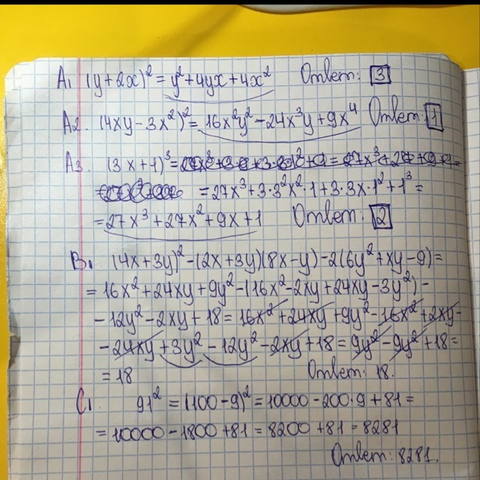 A1 (y+2x)² = y²+4yx+4x² Ответ: 3
A2. (4xy-3x²)² = 16x²y²-24x³y+9x⁴ Ответ: 1
A3. (3x+1)³ =
= 27x³+3·3²x²·1+3·3x·1²+1³ =
= 27x³+27x²+9x+1 Ответ: 2
B1 (4x+3y)²-(2x+3y)(8x-y)-2(6y²+xy-9)=
= 16x²+24xy+9y²-(16x²-2xy+24xy-3y²)-
-12y²-2xy+18 = 16x²+24xy+9y²-16x²+2xy-
-24xy+3y²-12y²-2xy+18 = 9y²-9y²+18=
= 18 Ответ: 18.
C1. 91² = (100-9)² = 10000-200·9+81 =
= 10000-1800+81 = 8200+81 = 8281
Ответ: 8281.